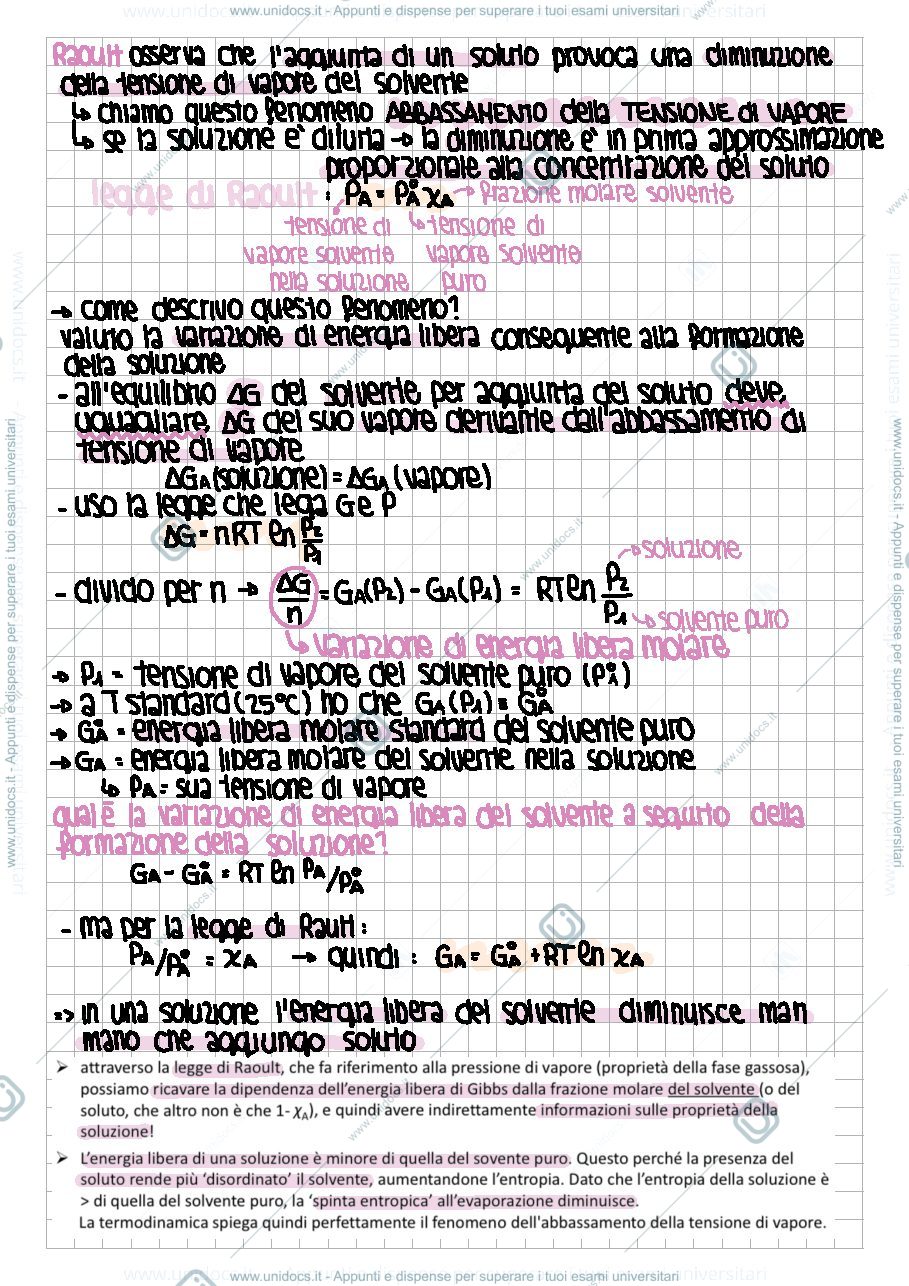 www.unidocs.it - Appunti e dispense per superare i tuoi esami universitari
Raoult osserva che l'aggiunta di un soluto provoca una diminuzione
della tensione di vapore del solvente
↳ chiamo questo fenomeno ABBASSAMENTO della TENSIONE di VAPORE
↳ se la soluzione è diluita → la diminuzione è in prima approssimazione
proporzionale alla concentrazione del soluto
legge di Raoult : PA = P°A χA → frazione molare solvente
tensione di ↳ tensione di
vapore solvente vapore solvente
nella soluzione puro
→ come descrivo questo fenomeno?
valuto la variazione di energia libera conseguente alla formazione
della soluzione
- all'equilibrio ΔG del solvente per aggiunta del soluto deve
uguagliare ΔG del suo vapore derivante dall'abbassamento di
tensione di vapore
ΔGA (soluzione) = ΔGA (vapore)
- uso la legge che lega G e P
ΔG = nRT ln P2/P1
- divido per n → ΔG/n = GA(P2) - GA(P1) = RT ln P2/P1
→ soluzione
↳ solvente puro
↳ variazione di energia libera molare
→ P1 = tensione di vapore del solvente puro (P°A)
→ a T standard (25°C) ho che GA(P1) = G°A
→ G°A = energia libera molare standard del solvente puro
→ GA = energia libera molare del solvente nella soluzione
↳ PA = sua tensione di vapore
qual è la variazione di energia libera del solvente a seguito della
formazione della soluzione?
GA - G°A = RT ln PA/P°A
- ma per la legge di Rault:
PA/P°A = χA → quindi : GA = G°A + RT ln χA
=> in una soluzione l'energia libera del solvente diminuisce man
mano che aggiungo soluto
➢ attraverso la legge di Raoult, che fa riferimento alla pressione di vapore (proprietà della fase gassosa),
possiamo ricavare la dipendenza dell'energia libera di Gibbs dalla frazione molare del solvente (o del
soluto, che altro non è che 1- χA), e quindi avere indirettamente informazioni sulle proprietà della
soluzione!
➢ L'energia libera di una soluzione è minore di quella del sovente puro. Questo perché la presenza del
soluto rende più 'disordinato' il solvente, aumentandone l'entropia. Dato che l'entropia della soluzione è
> di quella del solvente puro, la 'spinta entropica' all'evaporazione diminuisce.
La termodinamica spiega quindi perfettamente il fenomeno dell'abbassamento della tensione di vapore.
www.unidocs.it - Appunti e dispense per superare i tuoi esami universitari
www.unidocs.it - Appunti e dispense per superare i tuoi esami universitari
www.unidocs.it - Appunti e dispense per superare i tuoi esami universitari